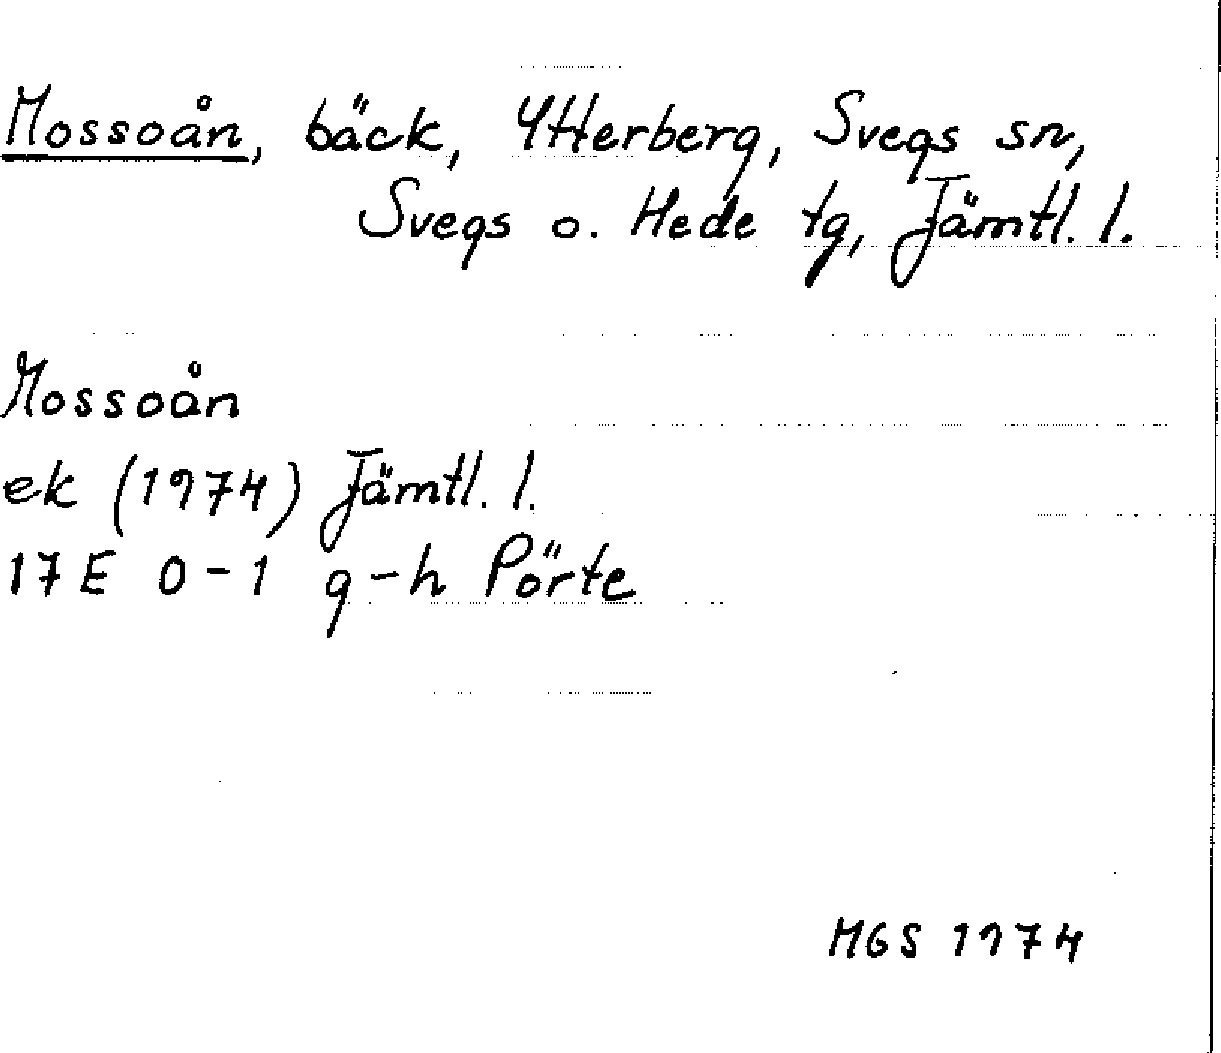 Mossoån, bäck, Ytterberg, Svegs sn,
Svegs o. Hede tg, Jämtl. l.
Mossoån
ek (1974) Jämtl. l.
17E 0-1 g-h Pörte
MGS 1974